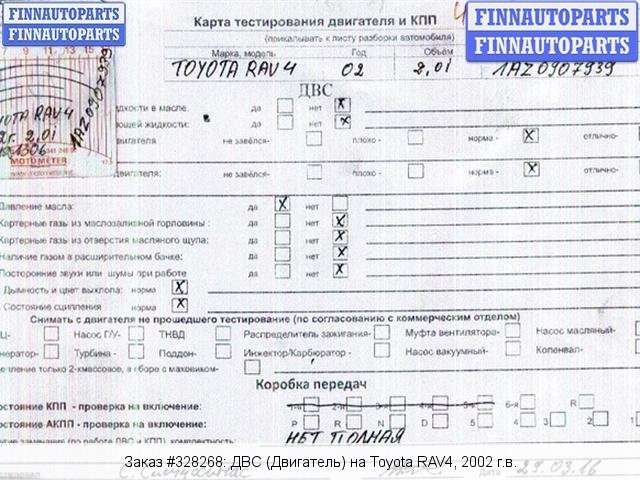 FINNAUTOPARTS
FINNAUTOPARTS
FINNAUTOPARTS
FINNAUTOPARTS
Карта тестирования двигателя и КПП
(прикалывать к листу разборки автомобиля)
Марка, модель Год Объём
TOYOTA RAV4 02 2,0i 1AZ0907939
ДВС
9 11 13 15
1AZ0907939
RAV4
2,0i
MOTOMETER
идкости в масле да нет X
ющей жидкости: да нет X
двигателя не завелся- плохо - норма - X отлично-
двигателя: не завелся- плохо - норма - X отлично-
Давление масла: да X нет
Картерные газы из маслозаливной горловины : да нет X
Картерные газы из отверстия масляного щупа: да нет X
Наличие газом а расширительном бачке: да нет X
Посторонние звуки или шумы при работе да нет X
Дымность и цвет выхлопа: норма X
Состояние сцепления норма X
Снимать с двигателя не прошедшего тестирование (по согласованию с коммерческим отделом)
Ц- Насос ГУ/- ТНВД Распределитель зажигания- Муфта вентилятора- Насос масляный-
нератор- Турбина - Поддон- Инжектор/Карбюратор - Насос вакуумный- Коленвал-
епление только 2-хмассовое, в сборе с маховиком-
Коробка передач
остояние КПП - проверка на включение: 1-я 2-я 3-я 4-я 5-я 6-я R
остояние АКПП - проверка на включение: P R N D 5 4 3 2
НЕТ ПОЛНАЯ
Заказ #328268: ДВС (Двигатель) на Toyota RAV4, 2002 г.в.
Дата 29.03.16